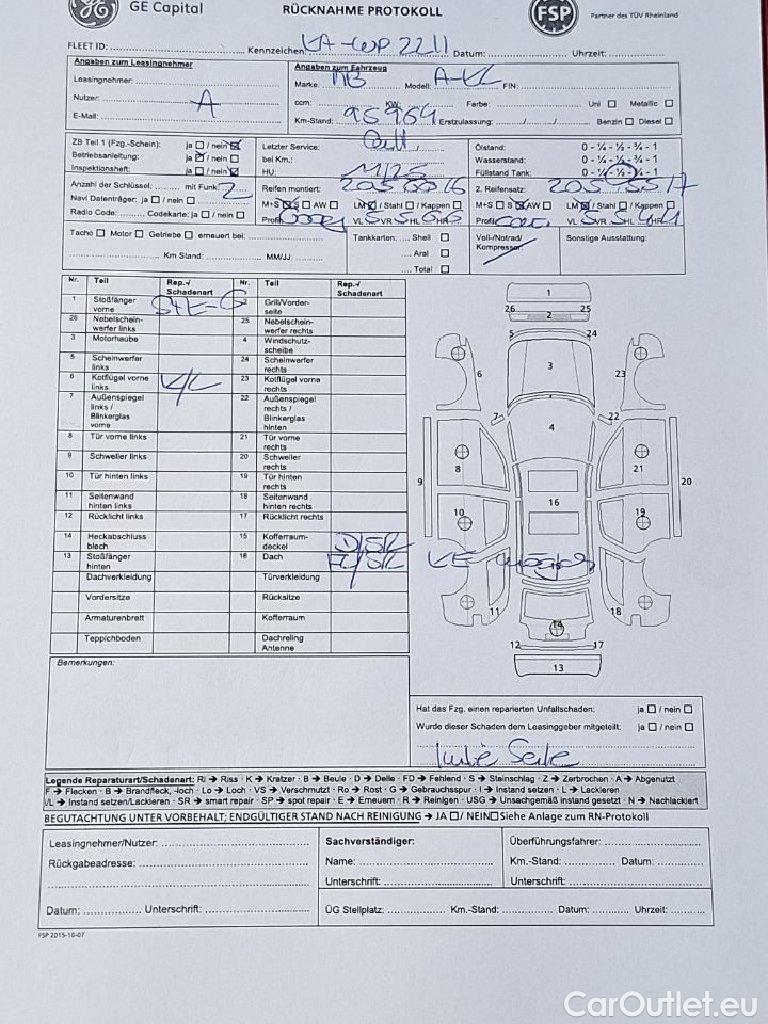 GE Capital RÜCKNAHME PROTOKOLL FSP Partner des TÜV Rheinland
FLEET ID: Kennzeichen: KA-WP 2211 Datum: Uhrzeit:
Angaben zum Leasingnehmer
Leasingnehmer:
Nutzer: A
E-Mail:
Angaben zum Fahrzeug
Marke: MB Modell: A-KL FIN:
ccm: KW: Farbe: Uni Metallic
Km-Stand: 95964 Erstzulassung: Benzin Diesel
ZB Teil 1 (Fzg.-Schein): ja / nein
Betriebsanleitung: ja / nein
Inspektionsheft: ja / nein
Letzter Service:
bei Km.:
HU: 11/25
Ölstand: 0 - ¼ - ½ - ¾ - 1
Wasserstand: 0 - ¼ - ½ - ¾ - 1
Füllstand Tank: 0 - ¼ - ½ - ¾ - 1
Anzahl der Schlüssel: mit Funk: 2
Navi Datenträger: ja / nein
Radio Code: Codekarte: ja / nein
Reifen montiert: 205 60 16
M+S S AW LM / Stahl / Kappen
Profil VL 5 VR 5 HL 6 HR 6
2. Reifensatz: 205 55 17
M+S S AW LM / Stahl / Kappen
Profil VL 5 VR 5 HL 4 HR 4
Tacho Motor Getriebe erneuert bei:
Km Stand: MM/JJ:
Tankkarten: Shell
Aral
Total
Voll-/Notrad/
Kompressor
Sonstige Ausstattung:
Nr. Teil Rep.-/ Schadenart Nr. Teil Rep.-/ Schadenart
1 Stoßfänger vorne 2 Grill/Vorderseite
26 Nebelscheinwerfer links 25 Nebelscheinwerfer rechts
3 Motorhaube 4 Windschutzscheibe
5 Scheinwerfer links 24 Scheinwerfer rechts
6 Kotflügel vorne links K/L 23 Kotflügel vorne rechts
7 Außenspiegel links / Blinkerglas vorne 22 Außenspiegel rechts / Blinkerglas hinten
8 Tür vorne links 21 Tür vorne rechts
9 Schweller links 20 Schweller rechts
10 Tür hinten links 19 Tür hinten rechts
11 Seitenwand hinten links 18 Seitenwand hinten rechts
12 Rücklicht links 17 Rücklicht rechts
14 Heckabschluss blech 15 Kofferraumdeckel D/SR
13 Stoßfänger hinten 16 Dach
Dachverkleidung Türverkleidung
Vordersitze Rücksitze
Armaturenbrett Kofferraum
Teppichboden Dachreling Antenne
1
26 2 25
5 24
6 3 23
7 22
4
8 21
9 20
16
10 19
11 18
14
12 17
13
Bemerkungen:
Hat das Fzg. einen reparierten Unfallschaden: ja / nein
Wurde dieser Schaden dem Leasinggeber mitgeteilt: ja / nein
Legende Reparaturart/Schadenart: RI → Riss · K → Kratzer · B → Beule · D → Delle · FD → Fehlend · S → Steinschlag · Z → Zerbrochen · A → Abgenutzt
F → Flecken · B → Brandfleck, -loch · Lo → Loch · VS → Verschmutzt · Ro → Rost · G → Gebrauchsspur · I → Instand setzen · L → Lackieren
I/L → Instand setzen/Lackieren · SR → smart repair · SP → spot repair · E → Erneuern · R → Reinigen · USG → Unsachgemäß instand gesetzt · N → Nachlackiert
BEGUTACHTUNG UNTER VORBEHALT; ENDGÜLTIGER STAND NACH REINIGUNG → JA / NEIN Siehe Anlage zum RN-Protokoll
Leasingnehmer/Nutzer:
Rückgabeadresse:
Datum: Unterschrift:
Sachverständiger:
Name:
Unterschrift:
Überführungsfahrer:
Km.-Stand: Datum:
Unterschrift:
ÜG Stellplatz: Km.-Stand: Datum: Uhrzeit:
FSP 2015-10-07
CarOutlet.eu